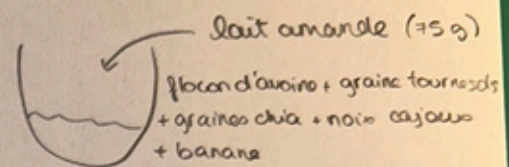 lait amande (75g)
flocon d'avoine + graine tournesols
+ graines chia + noix cajous
+ banane